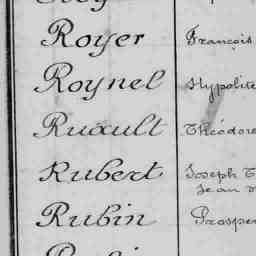 Royer François
Roynel Hypolite
Ruault Théodore
Rubert Joseph
Jean
Rubin Prosper